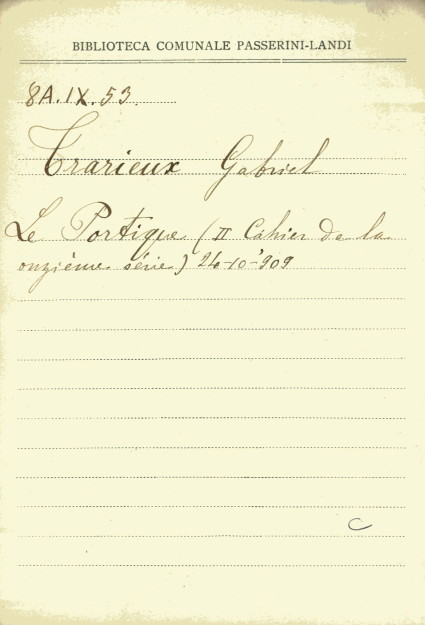 BIBLIOTECA COMUNALE PASSERINI-LANDI
8A.IX.53.
Trarieux Gabriel
Le Portique (II Cahier de la
onzième série) 24-10-'909
C